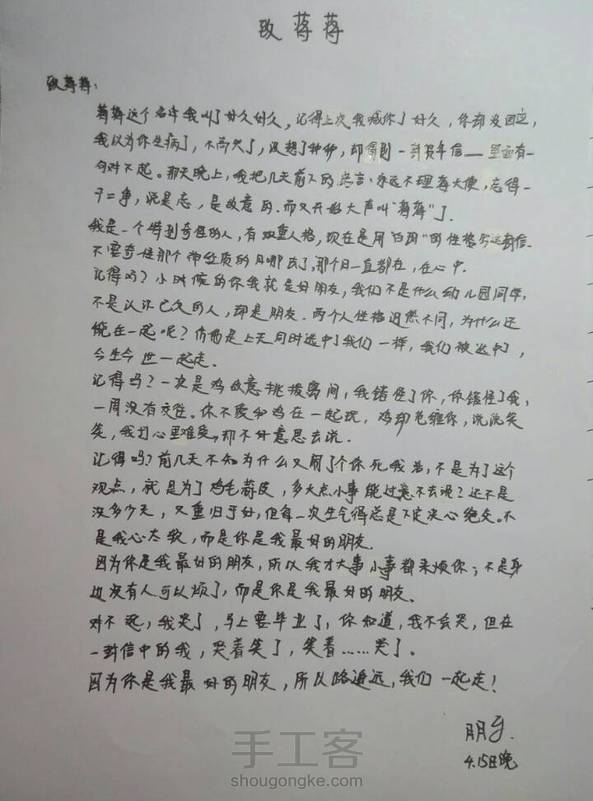 致蒋蒋
致蒋蒋：
蒋蒋这个名字我叫了好久好久，记得上次我喊你了好久，你却没回应，
我以为你生病了，不高兴了，没想了种种，却得到一封贺年信——里面有一
句对不起。那天晚上，我把几天前下的忠言：永远不理蒋大使，忘得一
干二净，说是忘，是故意的。而又开始大声叫"蒋蒋"了。
我是一个特别奇怪的人，有双重人格，现在是用"白雨"的性格写这封信。
不要奇怪那个神经质的月哪去了，那个月一直都在，在心中。
记得吗？小时候的你我就是好朋友，我们不是什么幼儿园同学，
不是认识已久的人，却是朋友。两个人性格迥然不同，为什么还
能在一起呢？仿佛是上天同时选中了我们一样，我们被选中，
今生今世一起走。
记得吗？一次是鸡故意挑拨离间，我错怪了你，你错怪了我，
一周没有交往。你不爱和鸡在一起玩，鸡却老缠你，说说笑
笑，我打心里难受，那不好意思去说。
记得吗？前几天不知为什么又闹了个你死我活，不是为了这个
观点，就是为了鸡毛蒜皮，多大点小事能过意不去说？还不是
没多少天，又重归于好，但每一次生气得总是下定决心绝交。不
是我心太软，而是你是我最好的朋友。
因为你是我最好的朋友，所以我才大事小事都来烦你；不是身
边没有人可以烦了，而是你是我最好的朋友。
对不起，我哭了，马上要毕业了，你知道，我不会哭，但在
一封信中的我，哭着笑了，笑着……哭了。
因为你是我最好的朋友，所以路遥远，我们一起走！
4.15日晚
手工客
shougongke.com